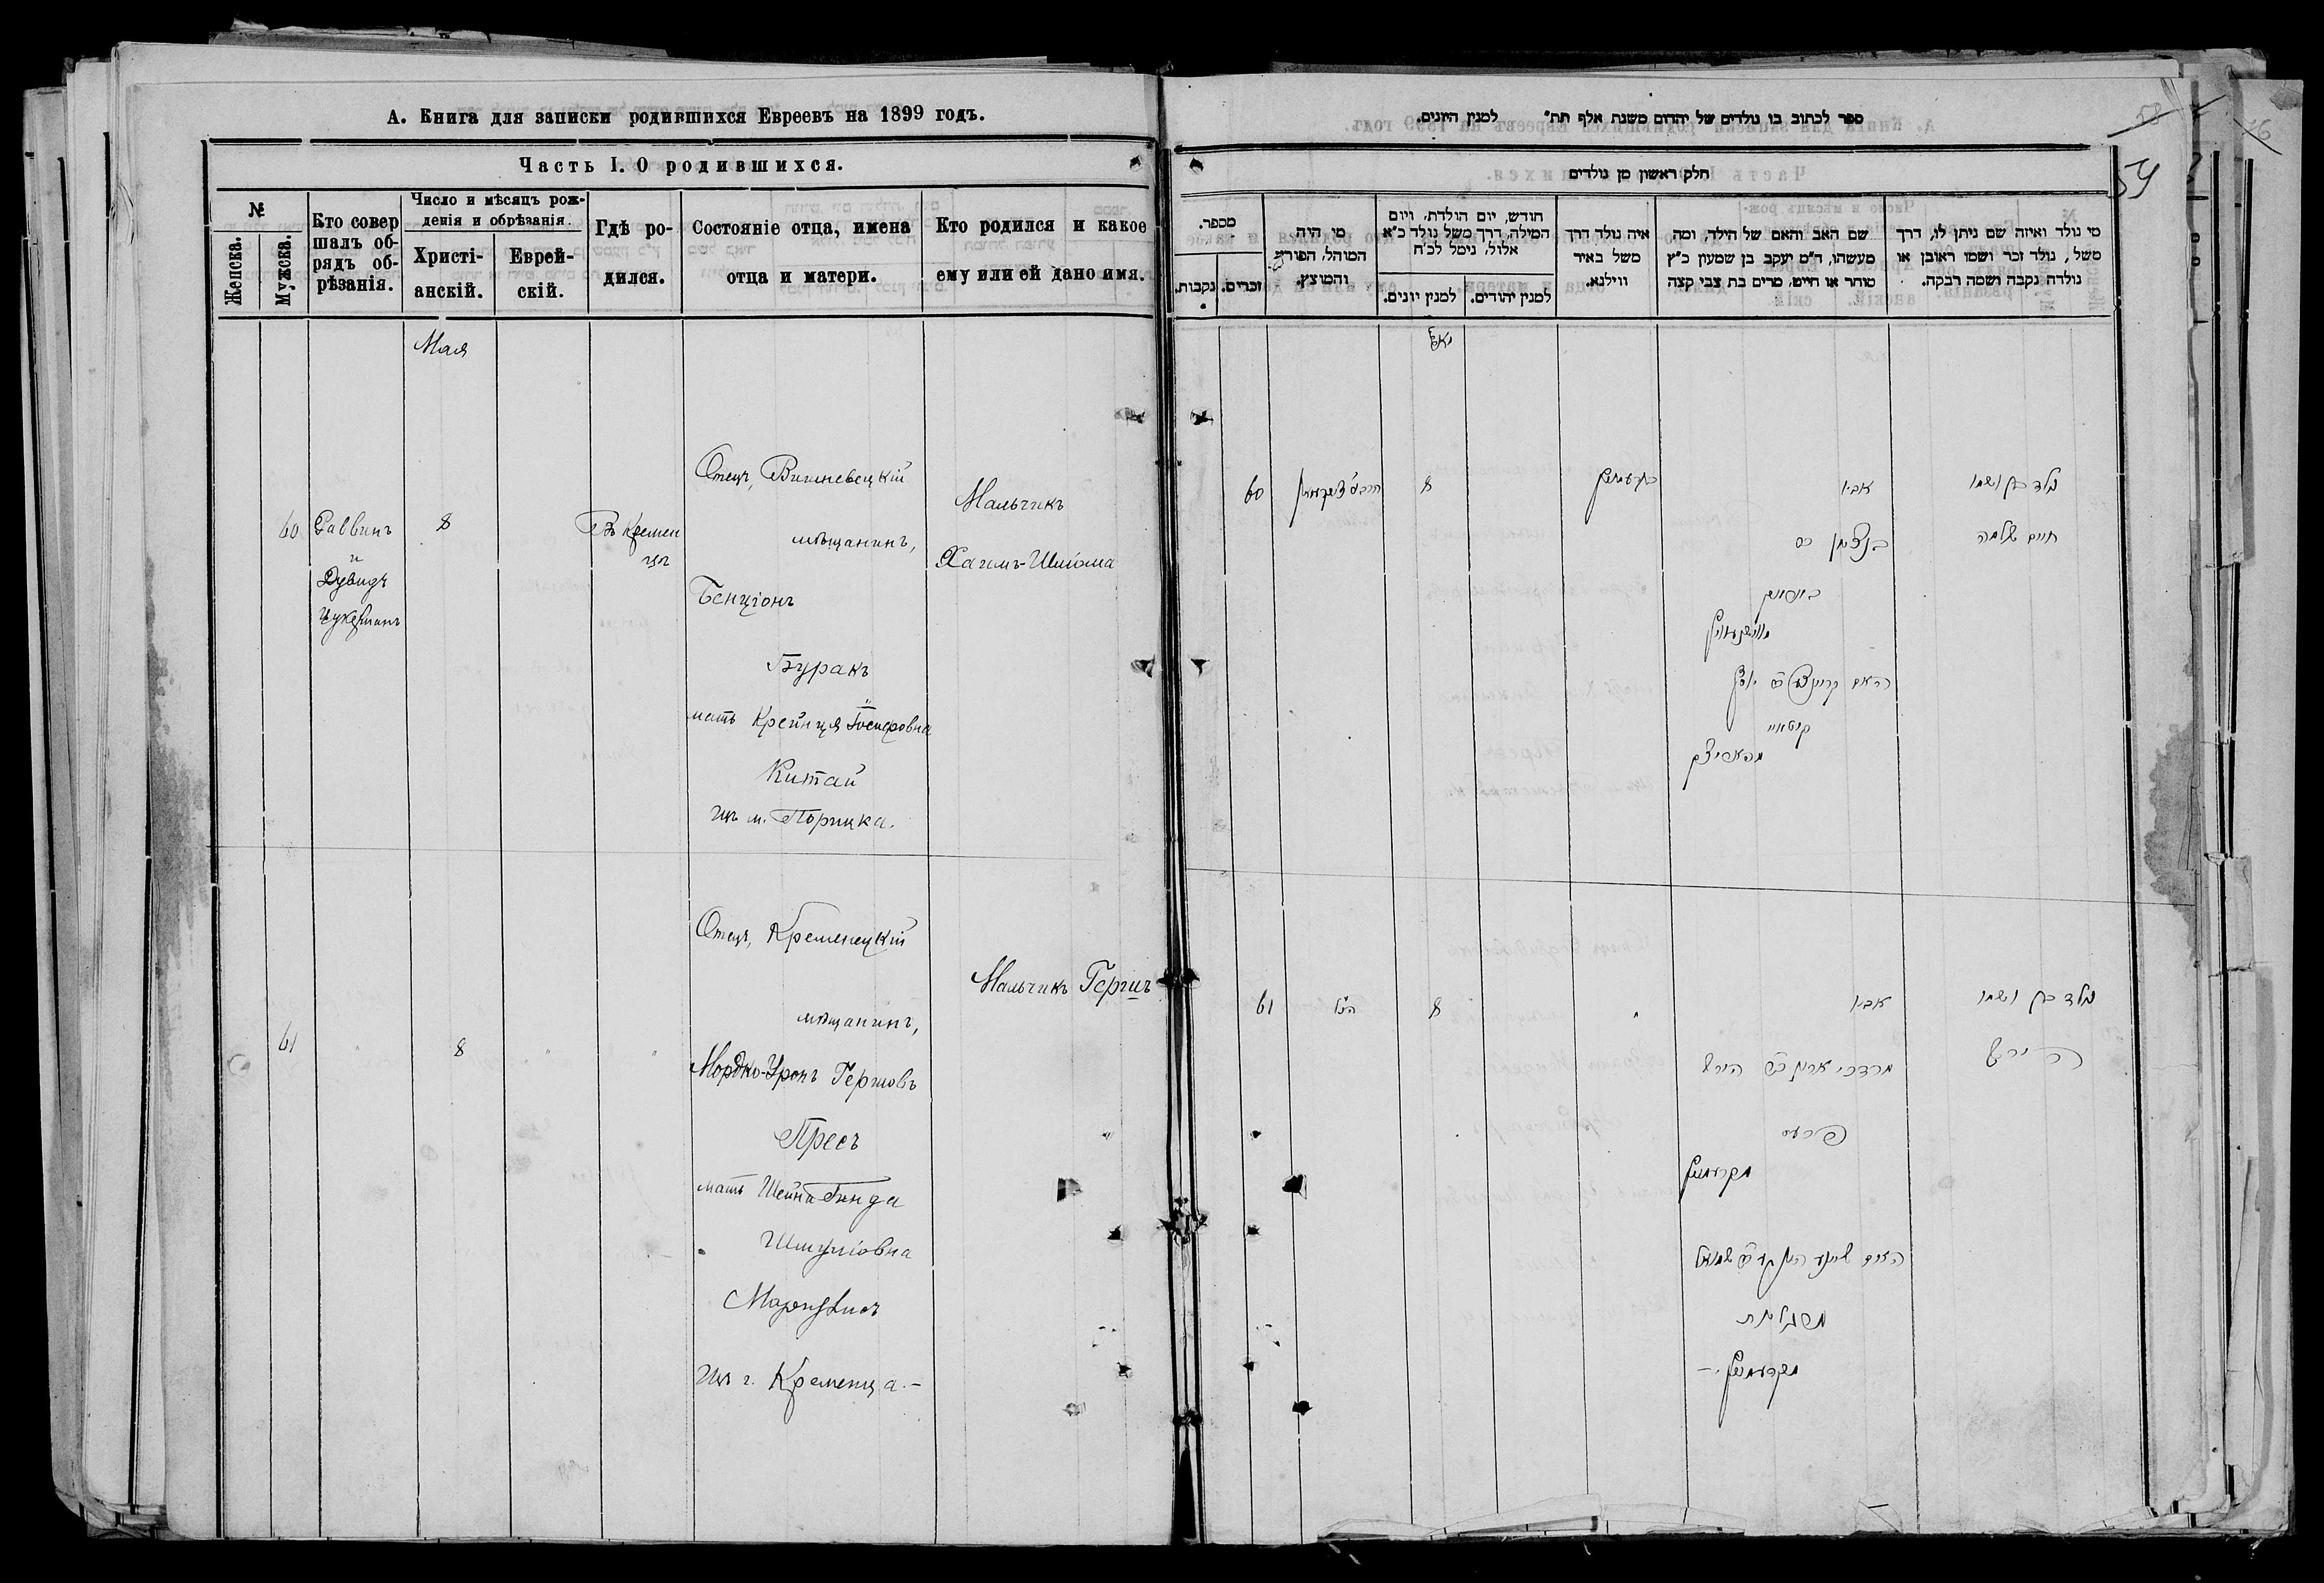 А. Книга для записки родившихся Евреевъ на 1899 годъ.
Часть I. О родившихся.
№
Женска.
Мужска.
Кто совер
шалъ об-
рядъ об-
рѣзанія.
Число и мѣсяцъ рож-
денія и обрѣзанія.
Христі-
анскій.
Еврей-
скій.
Гдѣ ро-
дился.
Состояніе отца, имена
отца и матери.
Кто родился и какое
ему или ей дано имя.
Мая
60
Раввинъ
и
Дувидъ
Цукерманъ
8
Въ Кремен
цѣ
Отецъ, Вишневецкій
мѣщанинъ,
Бенціонъ
Буракъ
мать Крейнця Іосифовна
Китай
изъ м. Порицка.
Мальчикъ
Хаимъ-Шлома
61
"
8
"
"
Отецъ, Кременецкій
мѣщанинъ,
Мордко-Уронъ Гершовъ
Пресъ
мать Шейна Гинда
Шмулiовна
Изъ г. Кременца.-
Мальчикъ Гершъ
ספר לכתוב בו נולדים של יהדום משנת אלף תת״ למנין היונים.
58
54
56
חלק ראשון מן נולדים
מספר.
נקבות.
זכרים.
מי היה
המוהל, הפורע
והמוצץ.
חודש, יום הולדת, ויום
המילה, דרך משל נולד כ״א
אלול, נימל לכ״ח
למנין יונים.
למנין יהודים.
איה נולד דרך
משל באיר
ווילנא.
שם האב והאם של הילד, ומה
מעשהו, ד״מ יעקב בן שמעון כ״ץ
סוחר או חייט, מרים בת צבי קצה
מי נולד ואיזה שם ניתן לו, דרך
משל, נולד זכר ושמו ראובן או
נולדה נקבה ושמה רבקה.
מאי
60
8
אביו
נולד בן ושמו
חיים שלמה
61
הנ״ל
8
"
אביו
מרדכי אהרן ב״ר הירש
פרעס
מקרעמניץ
מקרעמניץ.-
נולד בן ושמו
הירש